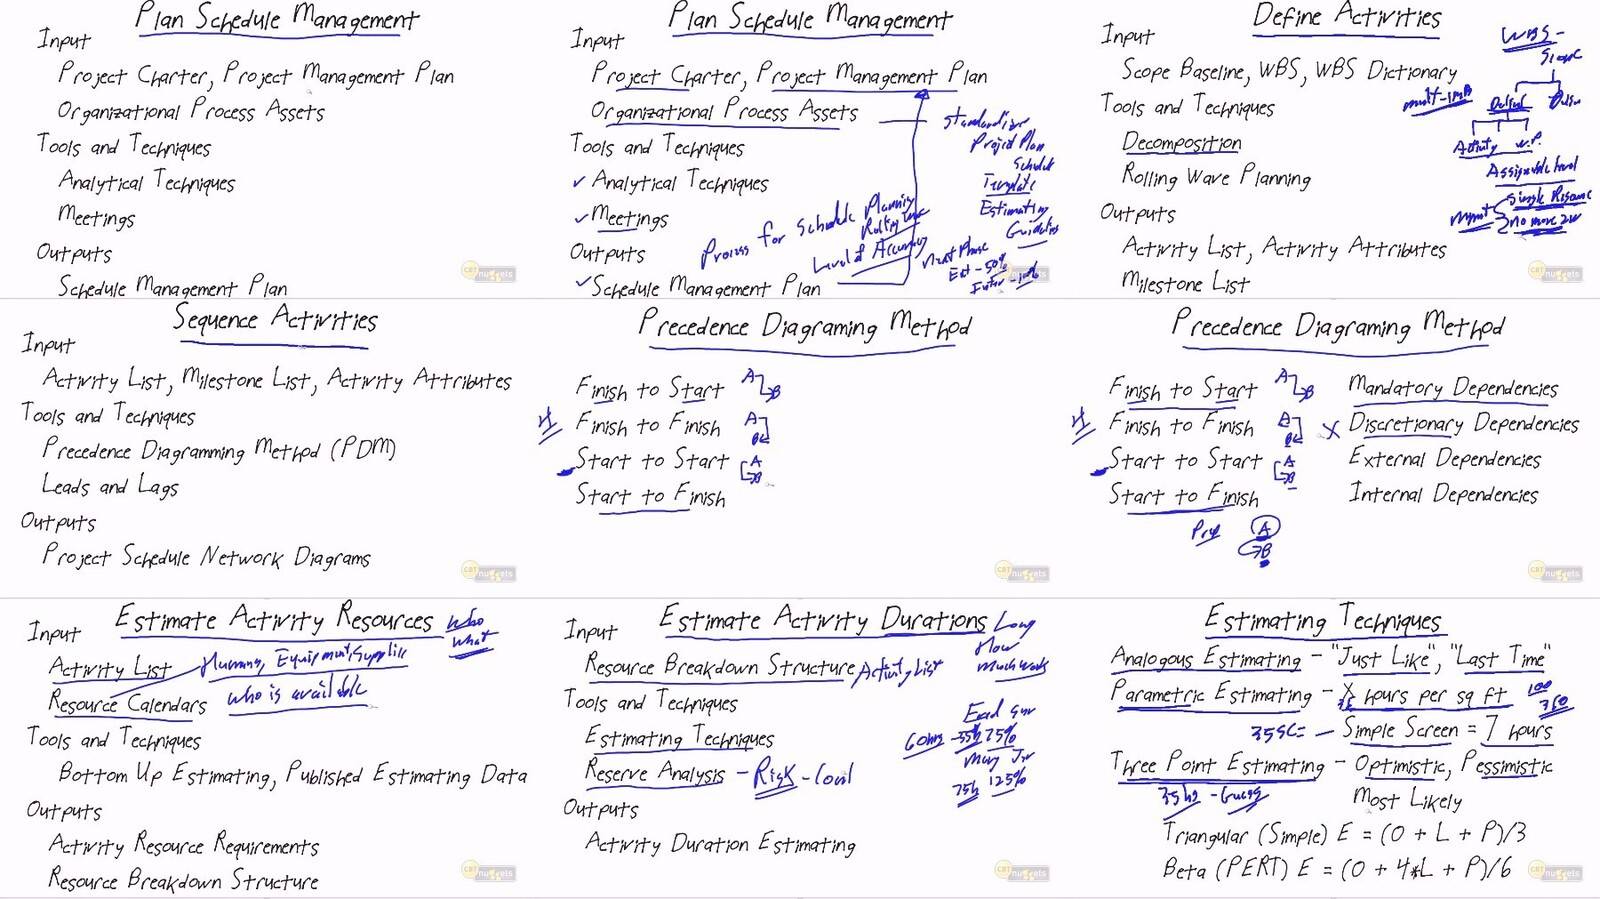 Plan Schedule Management
Input
Project Charter, Project Management Plan
Organizational Process Assets
Tools and Techniques
Analytical Techniques
Meetings
Outputs
Schedule Management Plan
CBT nuggets
Plan Schedule Management
Input
Project Charter, Project Management Plan
Organizational Process Assets
Tools and Techniques
Analytical Techniques
Meetings
Outputs
Schedule Management Plan
Project Plan
Template
Estimating
Process for Schedule Planning
Level of Accuracy
Next Phase
Est - 50%
CBT nuggets
Define Activities
Input
Scope Baseline, WBS, WBS Dictionary
Tools and Techniques
Decomposition
Rolling Wave Planning
Outputs
Activity List, Activity Attributes
Milestone List
WBS -
Activity W.P.
Assignable level
Single Resource
Mgmt
CBT nuggets
Sequence Activities
Input
Activity List, Milestone List, Activity Attributes
Tools and Techniques
Precedence Diagramming Method (PDM)
Leads and Lags
Outputs
Project Schedule Network Diagrams
CBT nuggets
Precedence Diagraming Method
Finish to Start A B
Finish to Finish A B
Start to Start A B
Start to Finish
CBT nuggets
Precedence Diagraming Method
Finish to Start A B
Finish to Finish B
Start to Start A B
Start to Finish
A
B
Mandatory Dependencies
X Discretionary Dependencies
External Dependencies
Internal Dependencies
CBT nuggets
Estimate Activity Resources
Who
What
Input
Activity List
Humans, Equipment, Supplies
Resource Calendars
Who is available
Tools and Techniques
Bottom Up Estimating, Published Estimating Data
Outputs
Activity Resource Requirements
Resource Breakdown Structure
CBT nuggets
Estimate Activity Durations
Long
How
Much Work
Input
Resource Breakdown Structure Activity List
Tools and Techniques
Estimating Techniques
Reserve Analysis - Risk -
75%
75h 125%
Outputs
Activity Duration Estimating
CBT nuggets
Estimating Techniques
Analogous Estimating - "Just Like", "Last Time"
Parametric Estimating - X hours per sq ft
Simple Screen = 7 hours
Three Point Estimating - Optimistic, Pessimistic
Most Likely
Triangular (Simple) E = (O + L + P)/3
Beta (PERT) E = (O + 4*L + P)/6
CBT nuggets